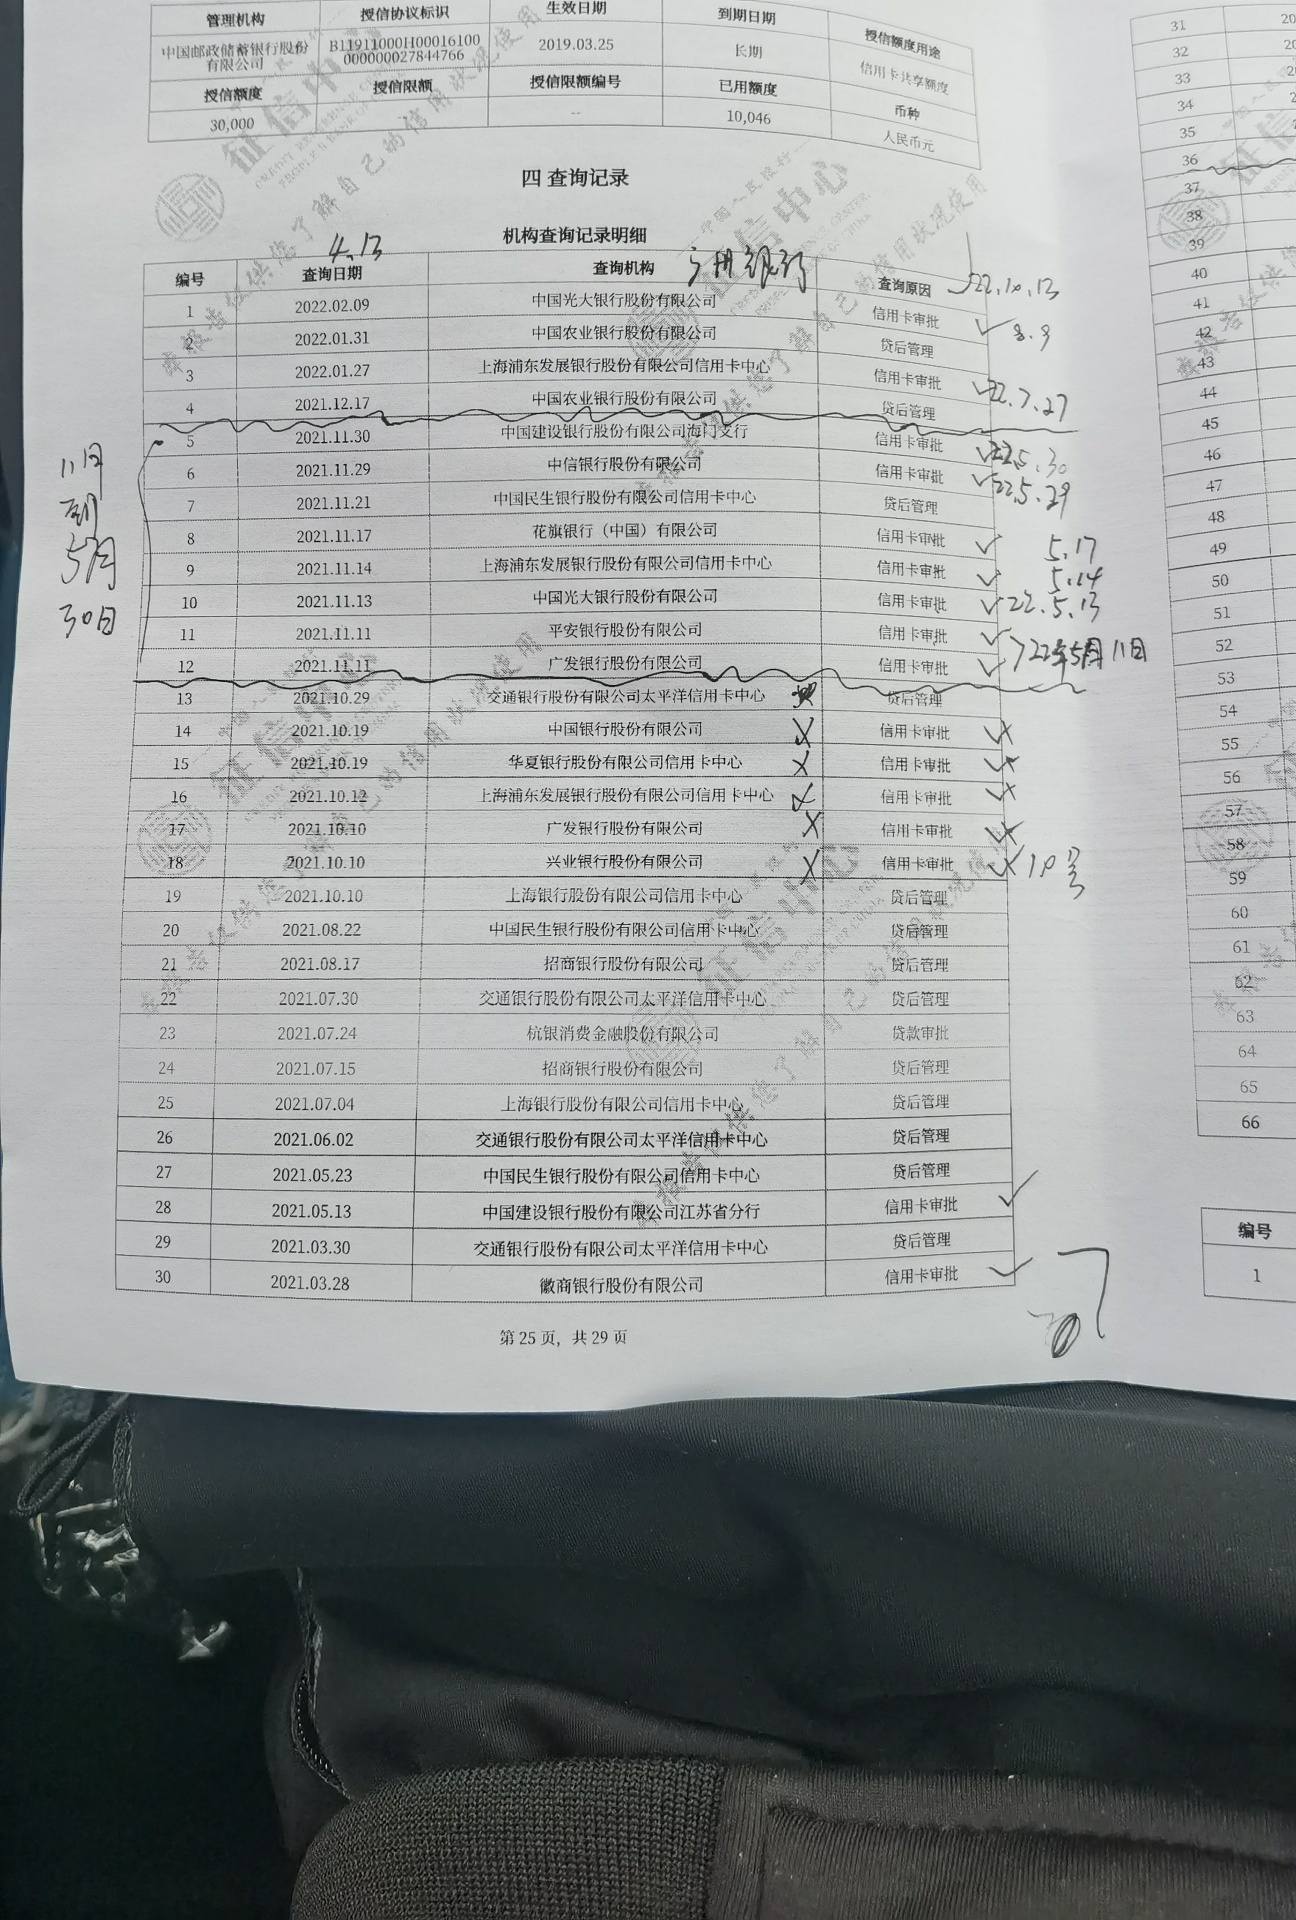 管理机构 授信协议标识 生效日期 到期日期 授信额度用途
中国邮政储蓄银行股份有限公司 B11911000H00016100000000027844766 2019.03.25 长期 信用卡共享额度
授信额度 授信限额 授信限额编号 已用额度 币种
30,000 -- 10,046 人民币元
四 查询记录
机构查询记录明细
4.13
编号 查询日期 查询机构 查询原因 22.10.13
1 2022.02.09 中国光大银行股份有限公司 信用卡审批 8.9
2 2022.01.31 中国农业银行股份有限公司 贷后管理
3 2022.01.27 上海浦东发展银行股份有限公司信用卡中心 信用卡审批 22.7.27
4 2021.12.17 中国农业银行股份有限公司 贷后管理
5 2021.11.30 中国建设银行股份有限公司海门支行 信用卡审批 22.5.30
6 2021.11.29 中信银行股份有限公司 信用卡审批 22.5.29
7 2021.11.21 中国民生银行股份有限公司信用卡中心 贷后管理
8 2021.11.17 花旗银行（中国）有限公司 信用卡审批 5.17
9 2021.11.14 上海浦东发展银行股份有限公司信用卡中心 信用卡审批 5.14
10 2021.11.13 中国光大银行股份有限公司 信用卡审批 22.5.13
11 2021.11.11 平安银行股份有限公司 信用卡审批
12 2021.11.11 广发银行股份有限公司 信用卡审批 22年5月11日
11日
到
5月
30日
13 2021.10.29 交通银行股份有限公司太平洋信用卡中心 贷后管理
14 2021.10.19 中国银行股份有限公司 信用卡审批
15 2021.10.19 华夏银行股份有限公司信用卡中心 信用卡审批
16 2021.10.12 上海浦东发展银行股份有限公司信用卡中心 信用卡审批
17 2021.10.10 广发银行股份有限公司 信用卡审批
18 2021.10.10 兴业银行股份有限公司 信用卡审批 10号
19 2021.10.10 上海银行股份有限公司信用卡中心 贷后管理
20 2021.08.22 中国民生银行股份有限公司信用卡中心 贷后管理
21 2021.08.17 招商银行股份有限公司 贷后管理
22 2021.07.30 交通银行股份有限公司太平洋信用卡中心 贷后管理
23 2021.07.24 杭银消费金融股份有限公司 贷款审批
24 2021.07.15 招商银行股份有限公司 贷后管理
25 2021.07.04 上海银行股份有限公司信用卡中心 贷后管理
26 2021.06.02 交通银行股份有限公司太平洋信用卡中心 贷后管理
27 2021.05.23 中国民生银行股份有限公司信用卡中心 贷后管理
28 2021.05.13 中国建设银行股份有限公司江苏省分行 信用卡审批
29 2021.03.30 交通银行股份有限公司太平洋信用卡中心 贷后管理
30 2021.03.28 徽商银行股份有限公司 信用卡审批
第 25 页，共 29 页
31
32
33
34
35
36
37
38
39
40
41
42
43
44
45
46
47
48
49
50
51
52
53
54
55
56
57
58
59
60
61
62
63
64
65
66
编号
1